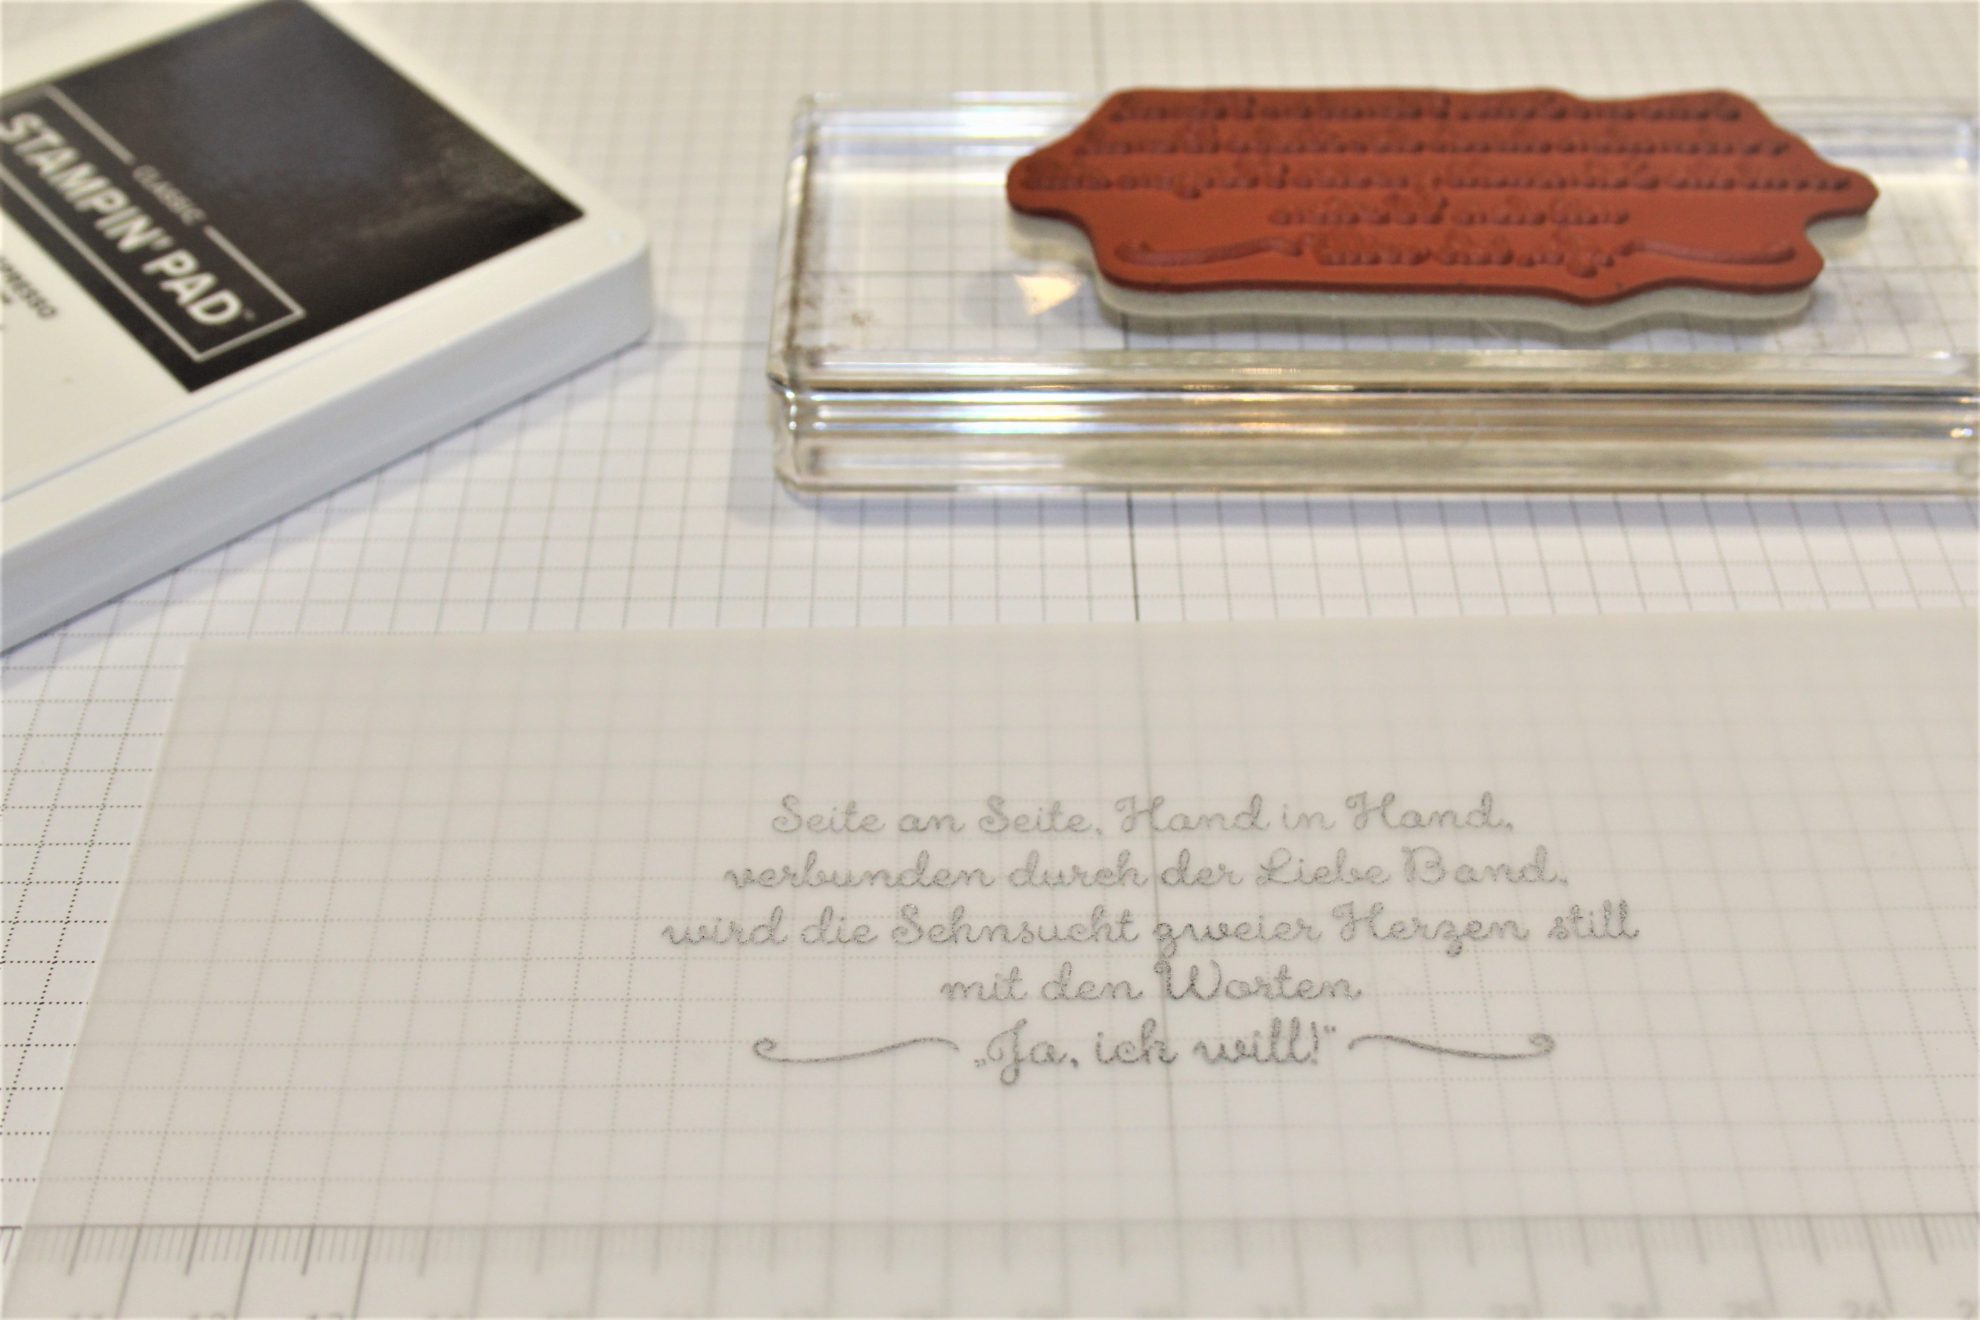 CLASSIC
STAMPIN' PAD™
Seite an Seite, Hand in Hand,
verbunden durch der Liebe Band,
wird die Sehnsucht zweier Herzen still
mit den Worten
„Ja, ich will!“